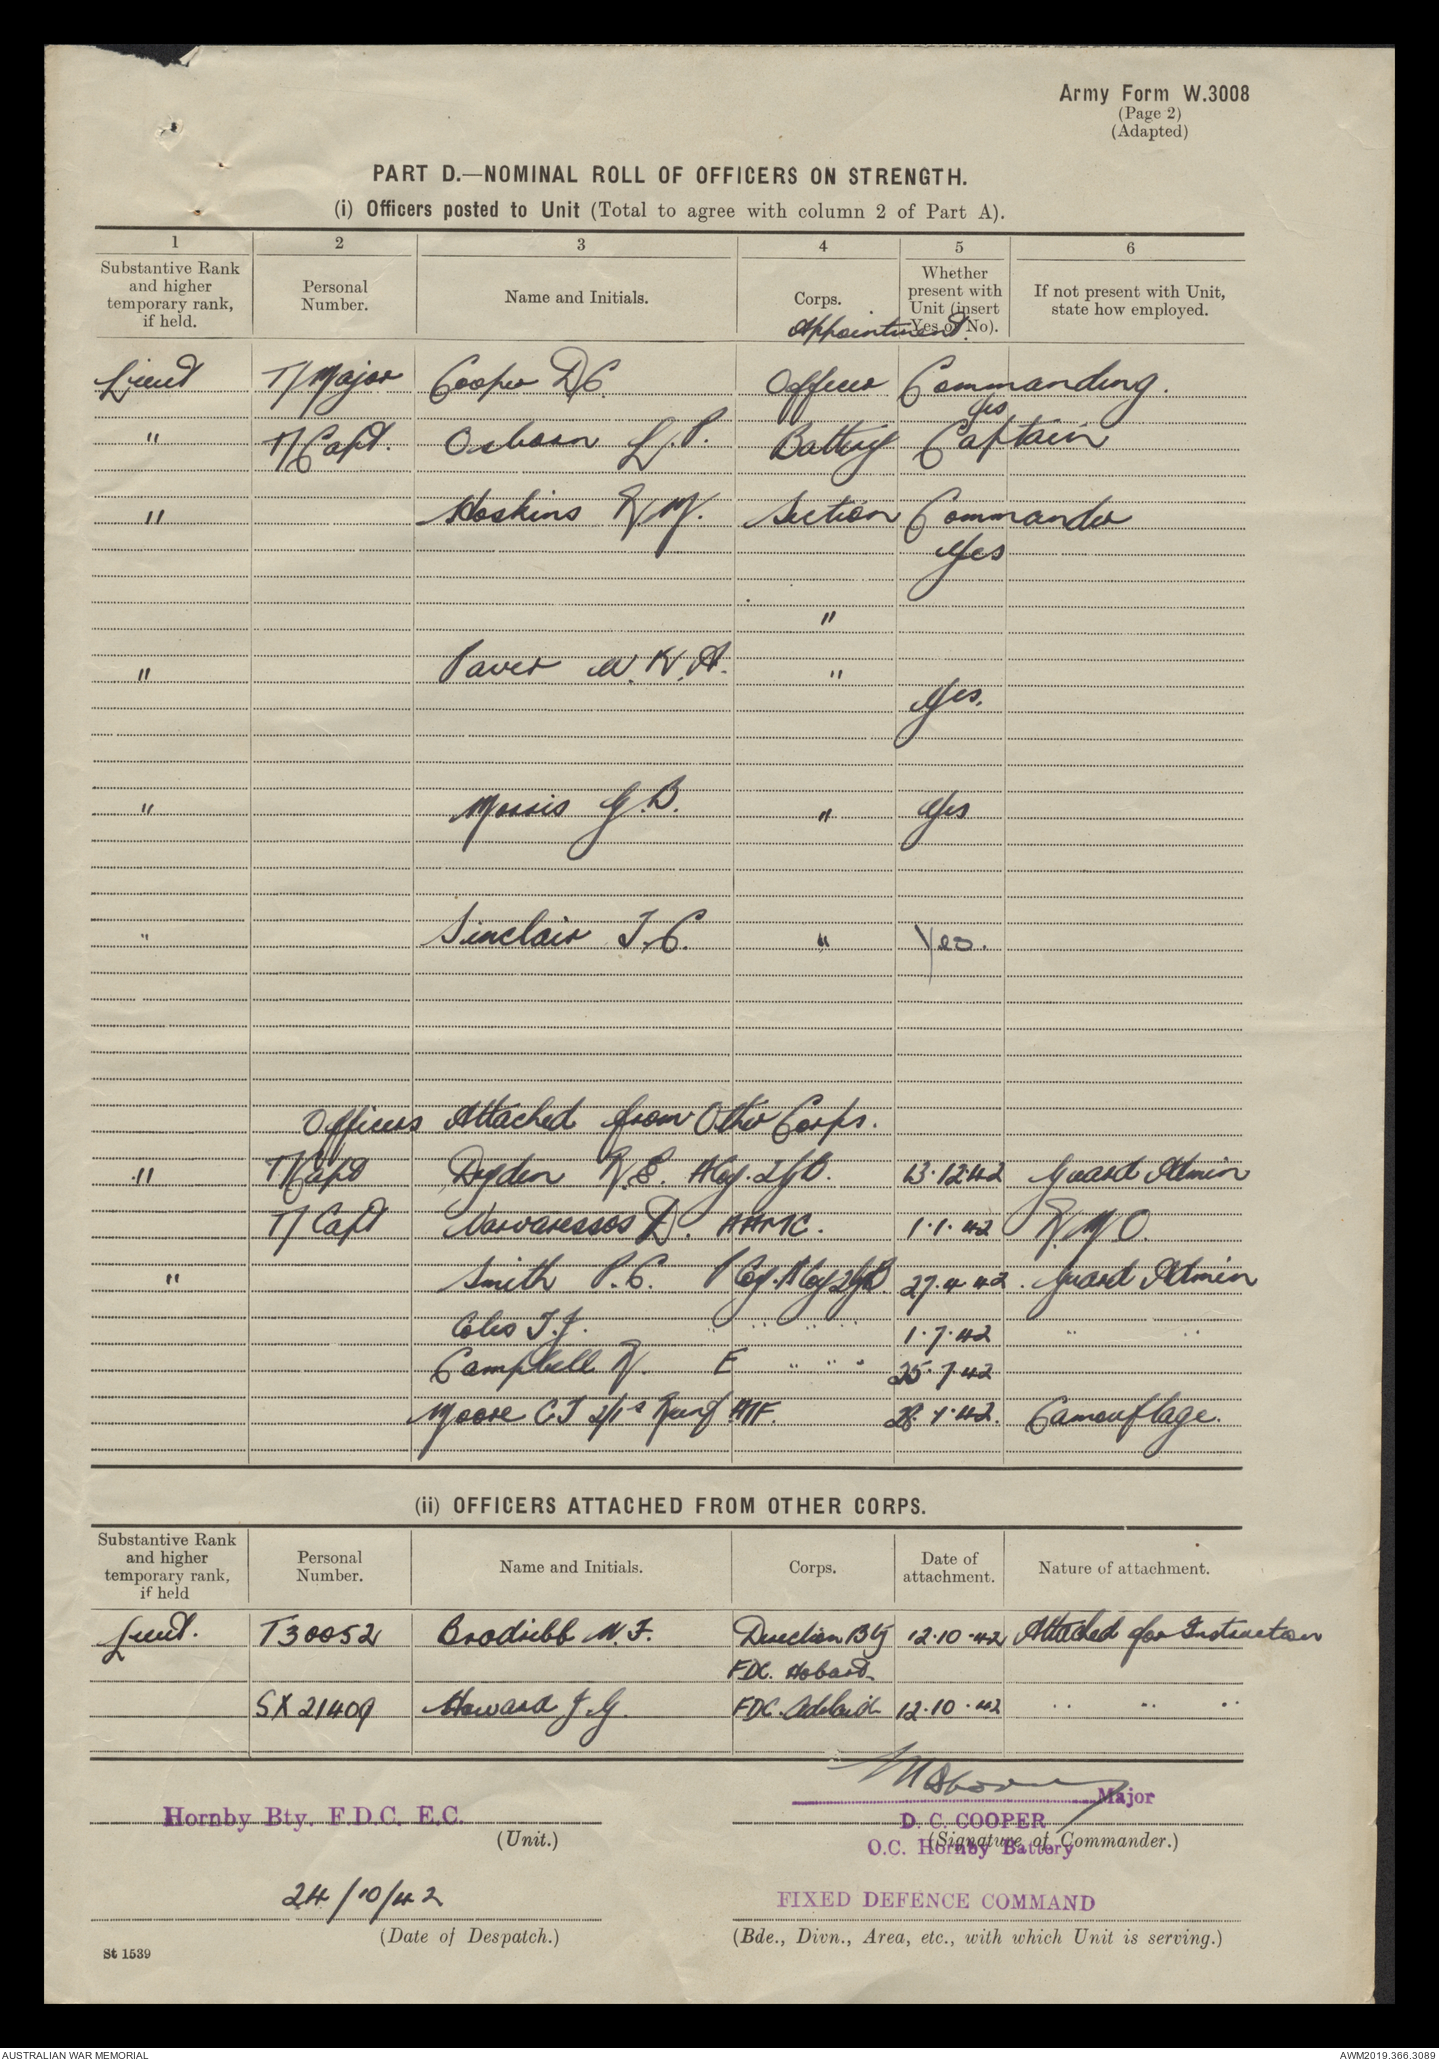 Army Form W.3008
(Page 2)
(Adapted)
PART D.—NOMINAL ROLL OF OFFICERS ON STRENGTH.
(i) Officers posted to Unit (Total to agree with column 2 of Part A).
1 2 3 4 5 6
Substantive Rank and higher temporary rank, if held. Personal Number. Name and Initials. Corps. Whether present with Unit (insert Yes or No). If not present with Unit, state how employed.
Appointment.
Lieut T/Major Cooper D.C. Officer Commanding.
Yes
" T/Capt. Osborn L.P. Battery Captain
" Hoskins R.M. Section Commander
Yes
"
" Paver W.K.A. "
Yes.
" Morris G.B. " Yes
" Sinclair T.C. " Yes.
Officers Attached from Other Corps.
" T/Capt Dryden R.E. A Coy. 2 G.B. 13.12.42 Guard Admin
T/Capt Varvaressos D. AAMC. 1.1.42 R.M.O.
" Smith P.C. 27.4.42. Guard Admin
Coles T.J. " " " " 1.7.42 " "
Campbell R. E " " " 25.7.42
Moore C.T 2/1s AIF. 28.7.42. Camouflage.
(ii) OFFICERS ATTACHED FROM OTHER CORPS.
Substantive Rank and higher temporary rank, if held Personal Number. Name and Initials. Corps. Date of attachment. Nature of attachment.
Lieut. T30052 Brodribb N.F. Direction Bty 12.10.42 Attached for Instruction
FDC. Hobart
SX21409 Howard J.G. FDC. Adelaide 12.10.42 " " "
Major
Hornby Bty. F.D.C. E.C. D. C. COOPER
(Unit.) (Signature of Commander.)
O.C. Hornby Battery
24/10/42 FIXED DEFENCE COMMAND
(Date of Despatch.) (Bde., Divn., Area, etc., with which Unit is serving.)
St 1539
AUSTRALIAN WAR MEMORIAL AWM2019.366.3089